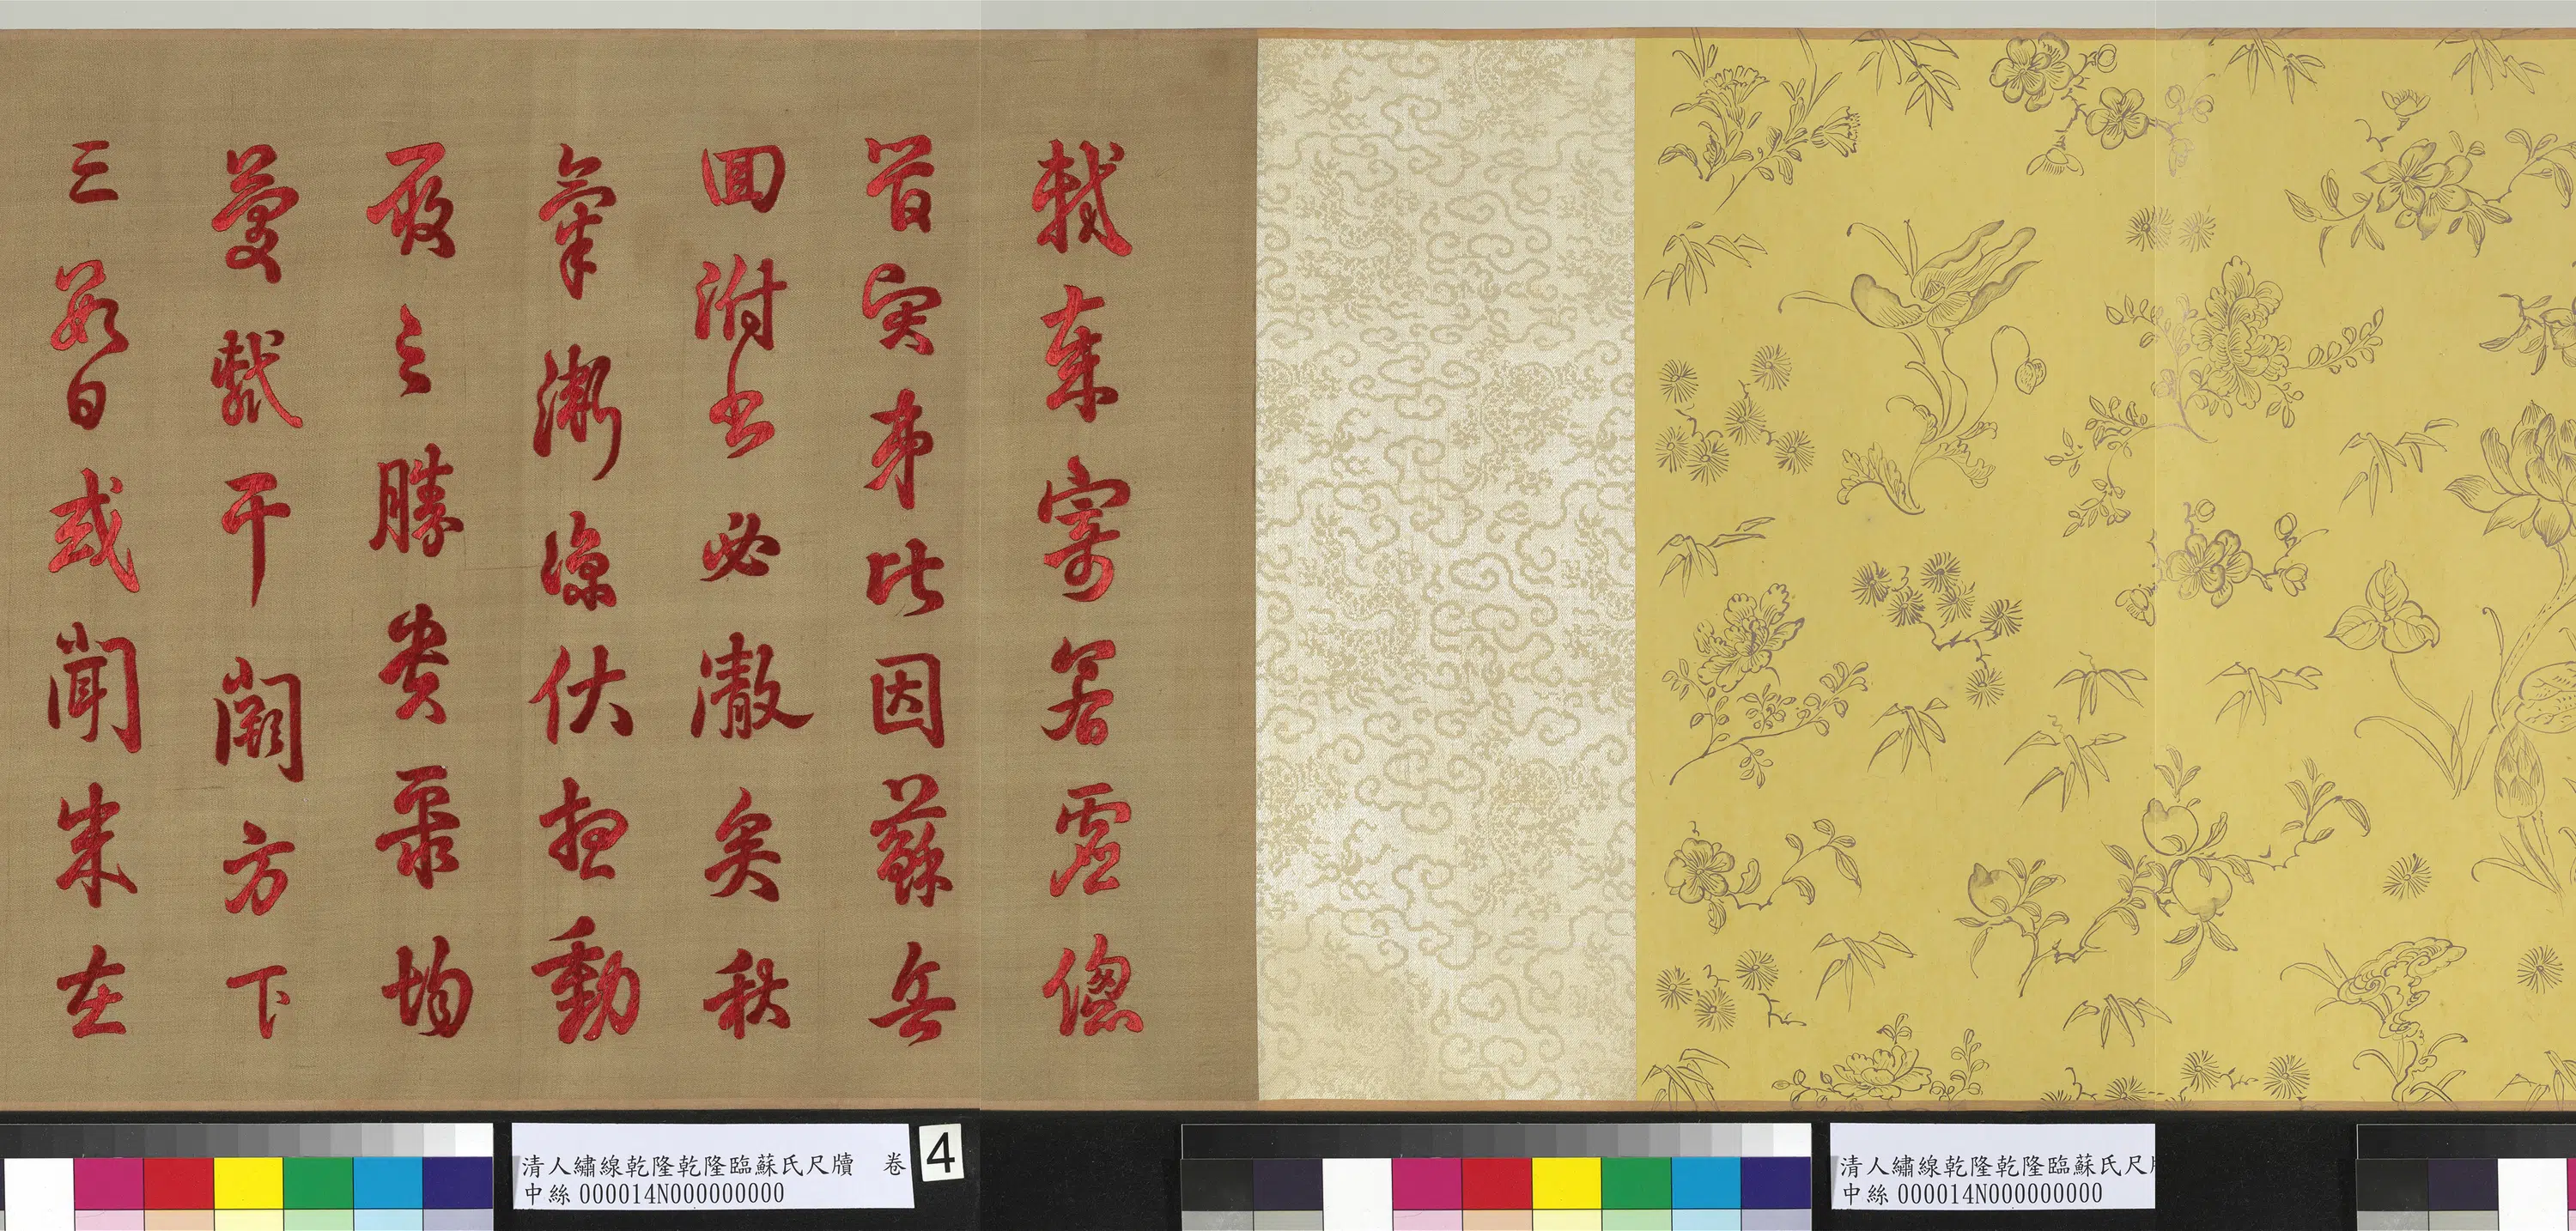 軾柬寄若虛總
管弟比因蘇兵
回附書必澈矣秋
氣漸涼伏想動
履之勝貴聚均
慶軾干闕方下
三數日或聞朱在
清人繡線乾隆乾隆臨蘇氏尺牘 卷
中絲 000014N000000000
4
清人繡線乾隆乾隆臨蘇氏尺
中絲 000014N000000000